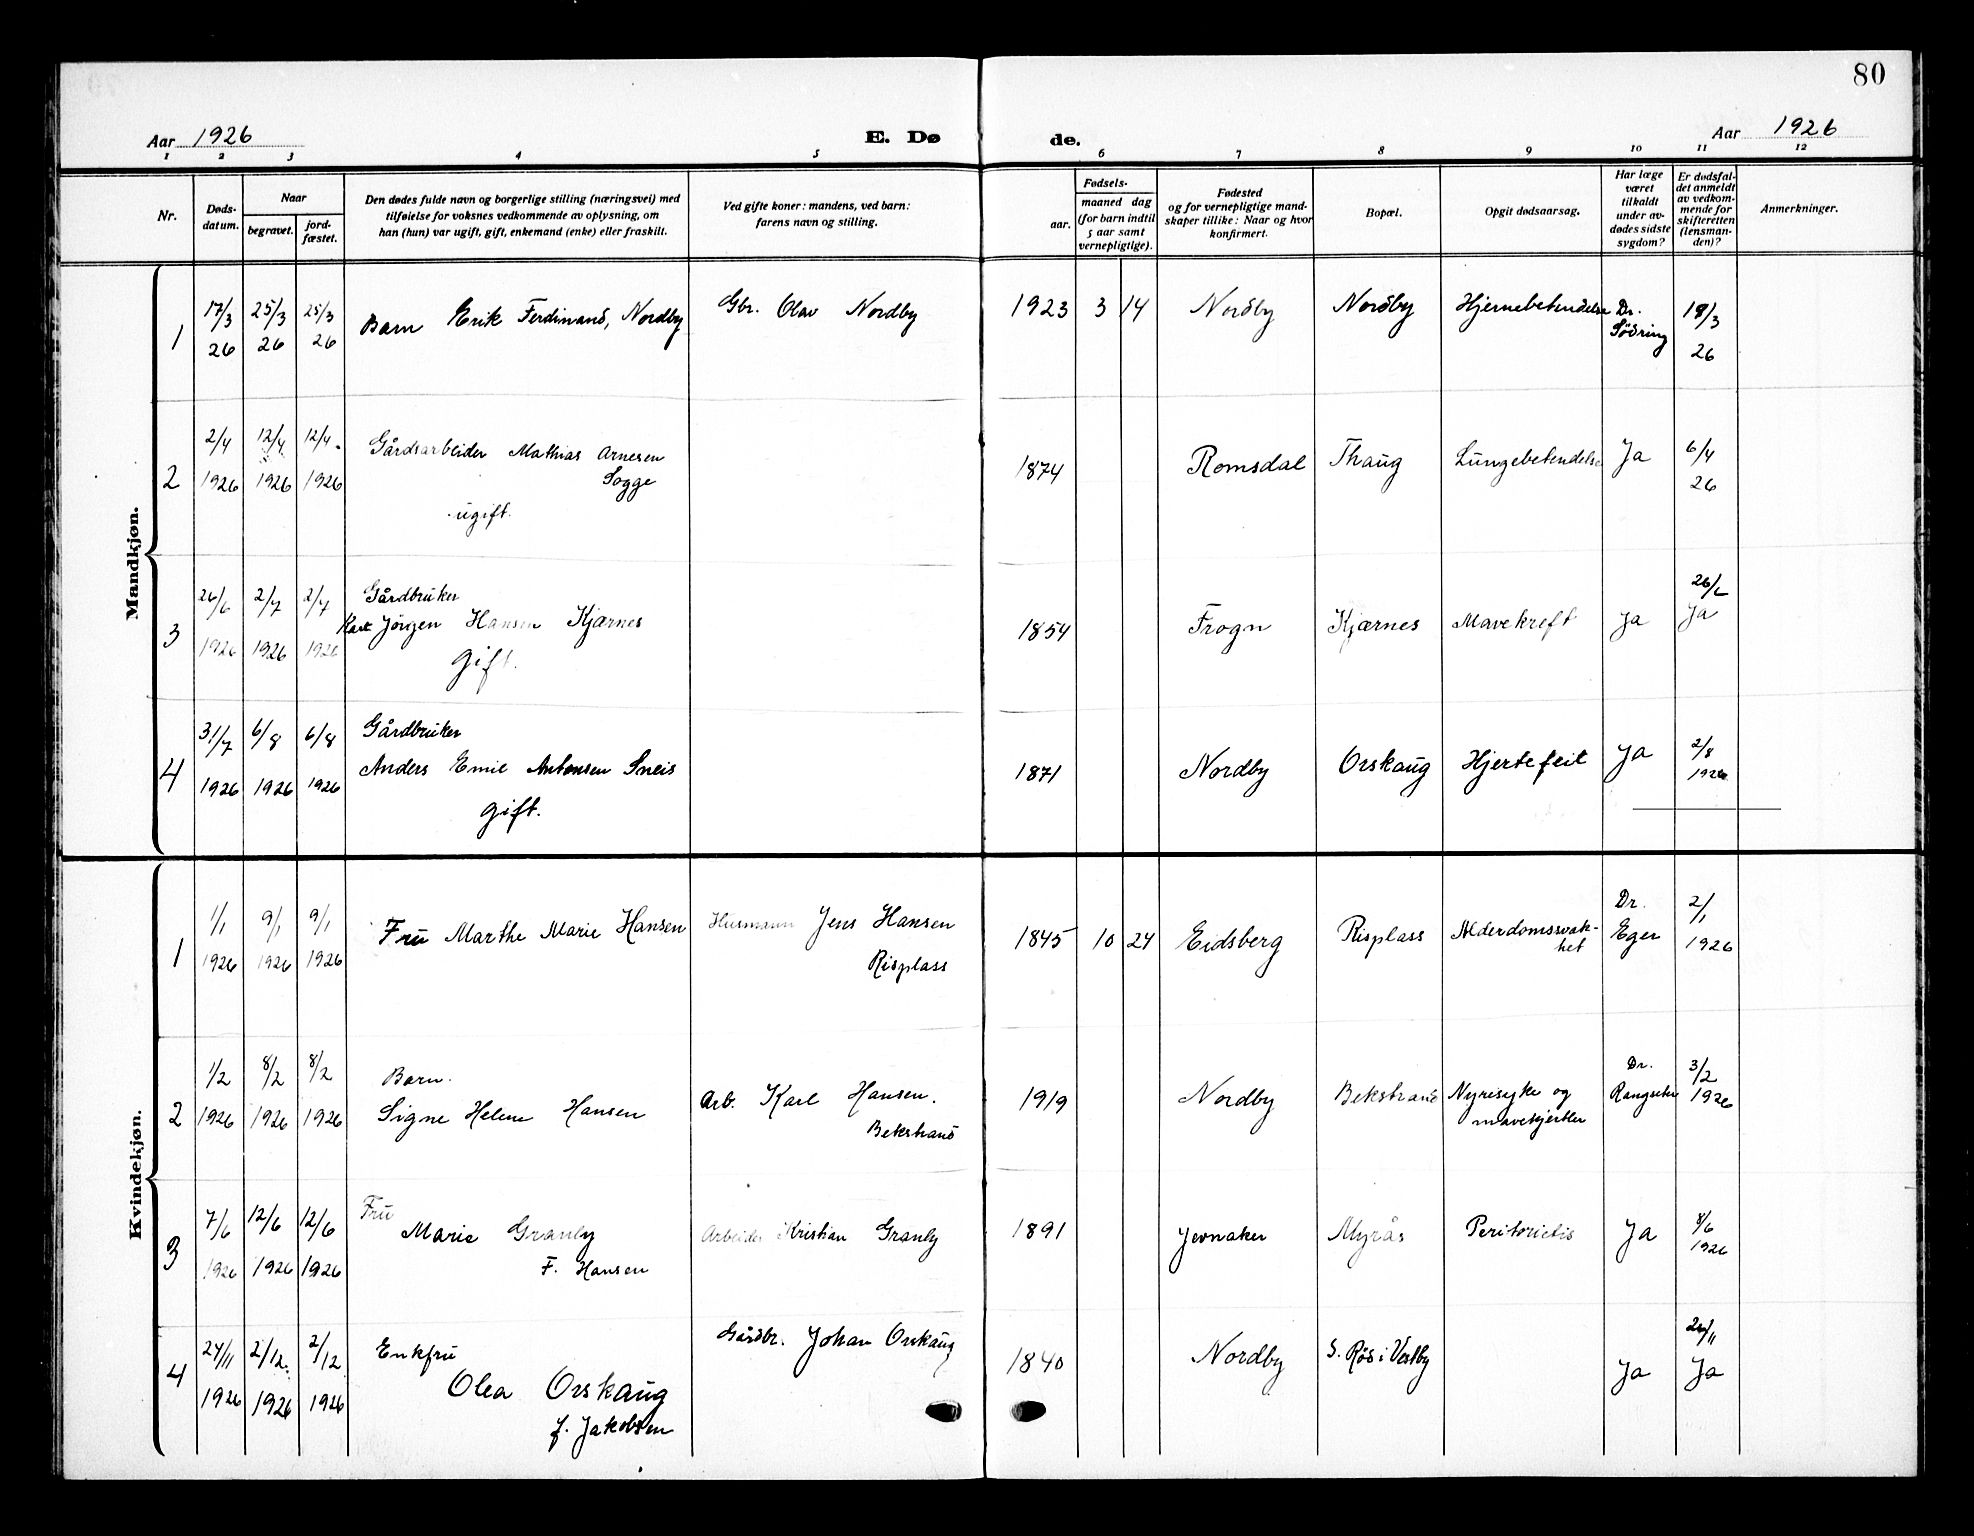 80
Aar 1926 E. Dø de. Aar 1926
1 2 3 4 5 6 7 8 9 10 11 12
Nr.
Døds-
datum.
Naar
begravet.
jord-
fæstet.
Den dødes fulde navn og borgerlige stilling (næringsvei) med
tilføielse for voksnes vedkommende av oplysning, om
han (hun) var ugift, gift, enkemand (enke) eller fraskilt.
Ved gifte koner: mandens, ved barn:
farens navn og stilling.
Fødsels-
aar.
maaned dag
(for barn indtil
5 aar samt
vernepligtige).
Fødested
og for vernepligtige mand-
skaper tillike: Naar og hvor
konfirmert.
Bopæl.
Opgit dødsaarsag.
Har læge
været
tilkaldt
under av-
dødes sidste
sygdom?
Er dødsfal-
det anmeldt
av vedkom-
mende for
skifteretten
(lensman-
den)?
Anmerkninger.
Mandkjøn.
1
17/3
26
25/3
26
25/3
26
Barn Erik Ferdinand, Nordby
Gbr. Olav Nordby
1923 3 14
Nordby
Nordby
Hjernebetendelse
Dr.
Södring
18/3
26
2
2/4
1926
12/4
1926
12/4
1926
Gårdsarbeider Mathias Arnesen
Sogge
ugift.
1874
Romsdal
Thaug
Lungebetendelse
Ja
6/4
26
3
26/6
1926
2/7
1926
2/7
1926
Gårdbruker
Karl Jörgen Hansen Kjærnes
gift.
1854
Frogn
Kjærnes
Mavekreft
Ja
26/6
Ja
4
31/7
1926
6/8
1926
6/8
1926
Gårdbruker
Anders Emil Antonsen Sneis
gift.
1871
Nordby
Orskaug
Hjertefeil
Ja
2/8
1926
Kvindekjøn.
1
1/1
1926
9/1
1926
9/1
1926
Fru Marthe Marie Hansen
Husmann Jens Hansen
Risplass
1845 10 24
Eidsberg
Risplass
Alderdomssvak-
het
Dr.
Eger
2/1
1926
2
1/2
1926
8/2
1926
8/2
1926
Barn.
Signe Helene Hansen
Arb. Karl Hansen.
Bekstrand
1919
Nordby
Bekstrand
Nyresyke og
mavekjertler
Dr.
3/2
1926
3
7/6
1926
12/6
1926
12/6
1926
Fru
Marie Granly
F. Hansen
Arbeider Kristian Granly
1891
Jevnaker
Myrås
Peritonitis
Ja
8/6
1926
4
24/11
1926
2/12.
1926
2/12
1926
Enkfru
Olea Orskaug
f. Jakobsen
Gårdbr. Johan Orskaug
1840
Nordby
S. Rös i Vestby
Ja
26/11
Ja